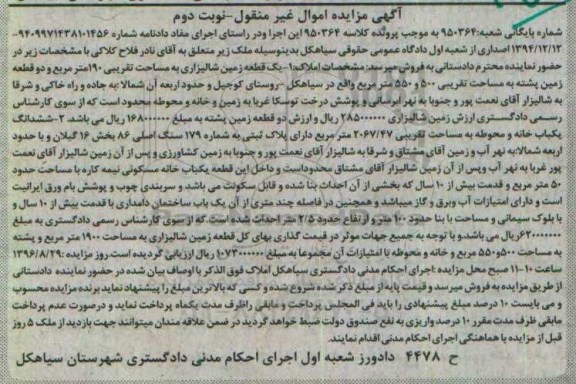 آگهی مزایده اموال غیر منقول-نوبت دوم
شماره بایگانی شعبه:۹۵۰۳۶۴ به موجب پرونده کلاسه ۹۵۰۳۶۴ این اجرا ودر راستای اجرای مفاد دادنامه شماره ۱۴۵۶-۹۴۰۹۹۷۱۴۳۸۱۰
۱۳۹۴/۱۲/۱۲ اصداری از شعبه اول دادگاه عمومی حقوقی سیاهکل بدینوسیله ملک زیر متعلق به آقای نادر فلاح کلاکی با مشخصات زیر در
حضور نماینده محترم دادستانی به فروش میرسد: مشخصات املاک:۱-یک قطعه زمین شالیزاری به مساحت تقریبی ۱۹۰۰متر مربع و دو قطعه
زمین پشته به مساحت تقریبی ۵۰۰ و ۵۵۰ متر مربع واقع در سیاهکل -روستای کوجیل و حدود اربعه آن شمالا: به جاده و راه خاکی و شرقا
به شالیزار آقای نعمت پور و جنوبا به نهر آبرسانی و پوشش درخت توسکا غربا به زمین و خانه و محوطه محدود است که از سوی کارشناس
رسمی دادگستری ارزش زمین شالیزاری ۲۸۵۰۰۰۰۰۰ ریال و ارزش دو قطعه زمین پشته به مبلغ ۱۶۸۰۰۰۰۰۰ ریال می باشد ۲-ششدانگ
یکباب خانه و محوطه به مساحت تقریبی ۲۰۶۷/۴۷ متر مربع دارای پلاک ثبتی به شماره ۱۷۹ سنگ اصلی ۸۶ بخش ۱۶ گیلان و با حدود
اربعه شمالا:به نهر آب و زمین آقای مشتاق و شرقا به شالیزار آقای نعمت پور و جنوبا به زمین کشاورزی و پس از آن زمین شالیزار آقای نعمت
پور غربا به نهر آب وپس از آن زمین شالیزار آقای مشتاق محدوداست و داخل این قطعه یکباب خانه مسکونی نیمه کاره با مساحت حدود
۵۰ متر مربع و قدمت بیش از ۱۰ سال که بخشی از آن احداث بنا شده و قابل سکونت می باشد و سربندی چوب و پوشش بام ورق ایرانیت
است و دارای امتیازات آب وبرق و گاز میباشد و همچنین در فاصله چند متری از آن یک باب ساختمان دامداری با قدمت بیش از ۱۰ سال و
با بلوک سیمانی و مساحت با بنا حدود ۱۰۰ متر و ارتفاع حدود ۲/۵ متر احداث شده است که از سوی کارشناس رسمی دادگستری به مبلغ
۶۲۰۰۰۰۰۰۰ریال می باشد.و با توجه به جمیع جهات موثر در قیمت گذاری بهای کل قطعه زمین شالیزاری به مساحت ۱۹۰۰ متر مربع و پشته
به مساحت ۵۰۰و۵۵۰ مربع و خانه و محوطه با امتیازات آن مجموعا به مبلغ ۱۰۷۳۰۰۰۰۰۰ ریال ارزیابی گردیده است.روز مزایده :۱۳۹۶/۸/۲۹
ساعت ۱۰-۱۱ صبح محل مزایده :اجرای احکام مدنی دادگستری سیاهکل املاک فوق الذکر با اوصاف بیان شده در حضور نماینده دادستانی
از طریق مزایده به فروش میرسد و قیمت پایه از مبلغ ذکر شده شروع شده و کسی که بالاترین مبلغ را پیشنهاد نماید برنده مزایده محسوب
و می بایست ۱۰ درصد مبلغ پیشنهادی را باید فی المجلس پرداخت و مابقی راظرف مدت یکماه پرداخت نماید و درصورت عدم پرداخت
مابقی ظرف مدت مقرر ۱۰ درصد واریزی به نفع صندوق دولت ضبط خواهد گردید در ضمن علاقه مندان میتوانند جهت بازدید از ملک ۵ روز
قبل از مزایده با هماهنگی اجرای احکام مدنی اقدام نمایند.
ح ۴۴۷۸ دادورز شعبه اول اجرای احکام مدنی دادگستری شهرستان سیاهکل